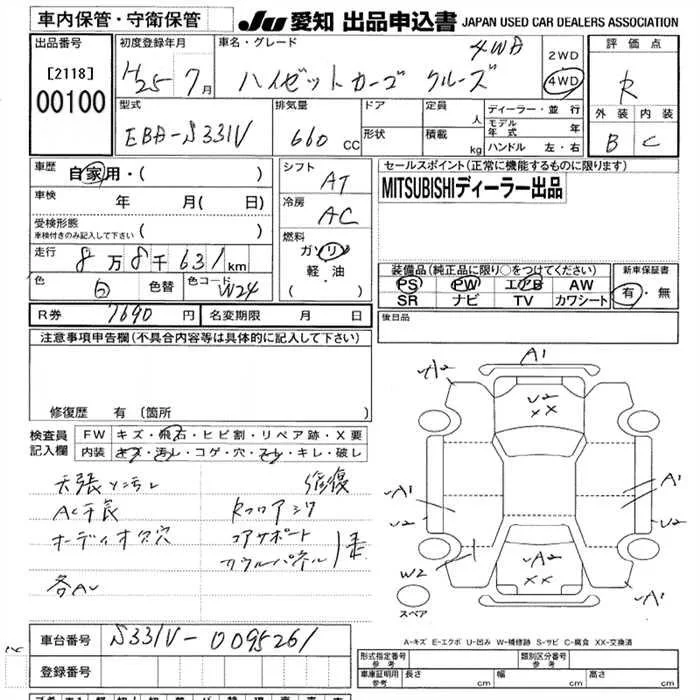 車内保管・守衛保管
JU 愛知 出品申込書 JAPAN USED CAR DEALERS ASSOCIATION
出品番号
[2118]
00100
初度登録年月
H25 7月
車名・グレード
ハイゼットカーゴ クルーズ 4WD
2WD
4WD
評価点
R
外装 内装
B C
型式
EBA-S331V
排気量
660 CC
ドア
形状
定員 人
積載 kg
ディーラー・並行
モデル年式 年
ハンドル 左・右
車歴 自家用・( )
車検 年 月( 日)
受検形態 ( )
車検付きのみ記入して下さい
走行 8万8千631km
色 白 色替 色コード W24
シフト
AT
冷房
AC
燃料
ガソリン
軽油
・( )
セールスポイント(正常に機能するものに限ります)
MITSUBISHIディーラー出品
装備品(純正品に限り○をつけてください)
PS PW エアB AW
SR ナビ TV カワシート
新車保証書
有・無
R券 7690円 名変期限 月 日
後日品
注意事項申告欄(不具合内容等は具体的に記入して下さい)
修復歴 有(箇所
検査員
記入欄
FW キズ・飛石・ヒビ割・リペア跡・X要
内装 キズ・汚レ・コゲ・穴・スレ・キレ・破レ
修復
AC
オーディオ欠穴
コアサポート
カウルパネル
各AU
A1
A2
U2
XX
A1
U2
A1
U2
A2
XX
W2
スペア
A-キズ E-エクボ U-凹み W-補修跡 S-サビ C-腐食 XX-交換済
車台番号 S331V-0095261
登録番号
形式指定番号
参考
類別区分番号
参考
車庫証明用
参考
長さ cm 幅 cm 高さ cm